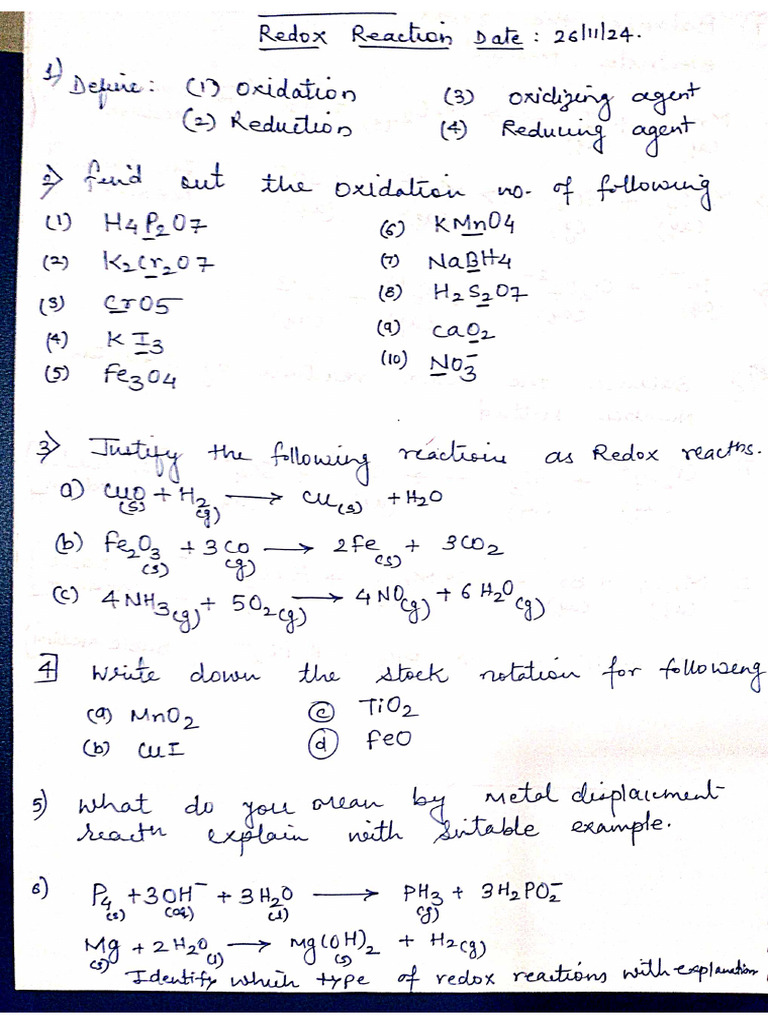 Redox Reaction Date : 26/11/24.
1) Define : (1) Oxidation (3) Oxidizing agent
(2) Reduction (4) Reducing agent
2) find out the oxidation no. of following
(1) H4P2O7 (6) KMnO4
(2) K2Cr2O7 (7) NaBH4
(3) CrO5 (8) H2S2O7
(4) KI3 (9) CaO2
(5) Fe3O4 (10) NO3⁻
3) Justify the following reactions as Redox reactns.
a) CuO(s) + H2(g) ⟶ Cu(s) + H2O
(b) Fe2O3(s) + 3CO(g) ⟶ 2Fe(s) + 3CO2
(c) 4NH3(g) + 5O2(g) ⟶ 4NO(g) + 6H2O(g)
4 write down the stock notation for following
(a) MnO2 (c) TiO2
(b) CuI (d) FeO
5) What do you mean by metal displacement
reactn explain with suitable example.
6) P4(s) + 3OH⁻(aq) + 3H2O(l) ⟶ PH3(g) + 3H2PO2⁻
Mg(s) + 2H2O(l) ⟶ Mg(OH)2(s) + H2(g)
Identify which type of redox reactions with explanation